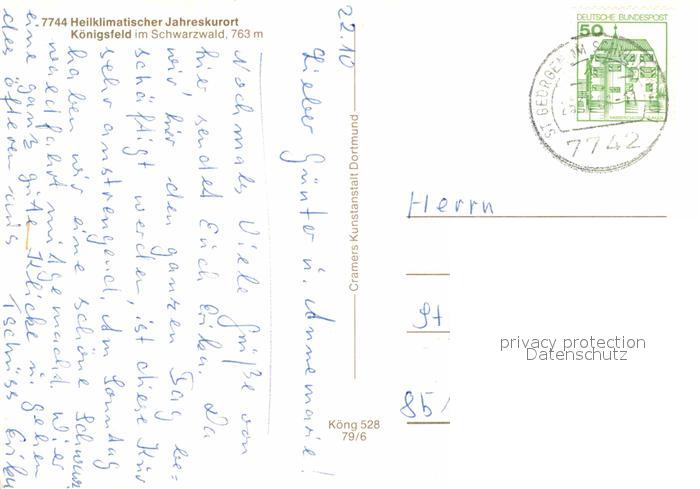 7744 Heilklimatischer Jahreskurort
Königsfeld im Schwarzwald, 763 m
22.10
Lieber Günter u. Annemarie!
Nochmals Viele Grüße von
hier sendet Euch Erika. Da
wir hier den ganzen Tag be=
schäftigt werden, ist diese Kur
sehr anstrengend. Am Sonntag
haben wir eine schöne Schwarz
waldfahrt mitgemacht. Wier
eine ganz gute Klicke u. gehen
des öfteren aus Tschüss Erika
Cramers Kunstanstalt Dortmund
Köng 528
79/6
DEUTSCHE BUNDESPOST
50
ST GEORGEN IM SCHWARZW
7742
Herrn
St
85
privacy protection
Datenschutz